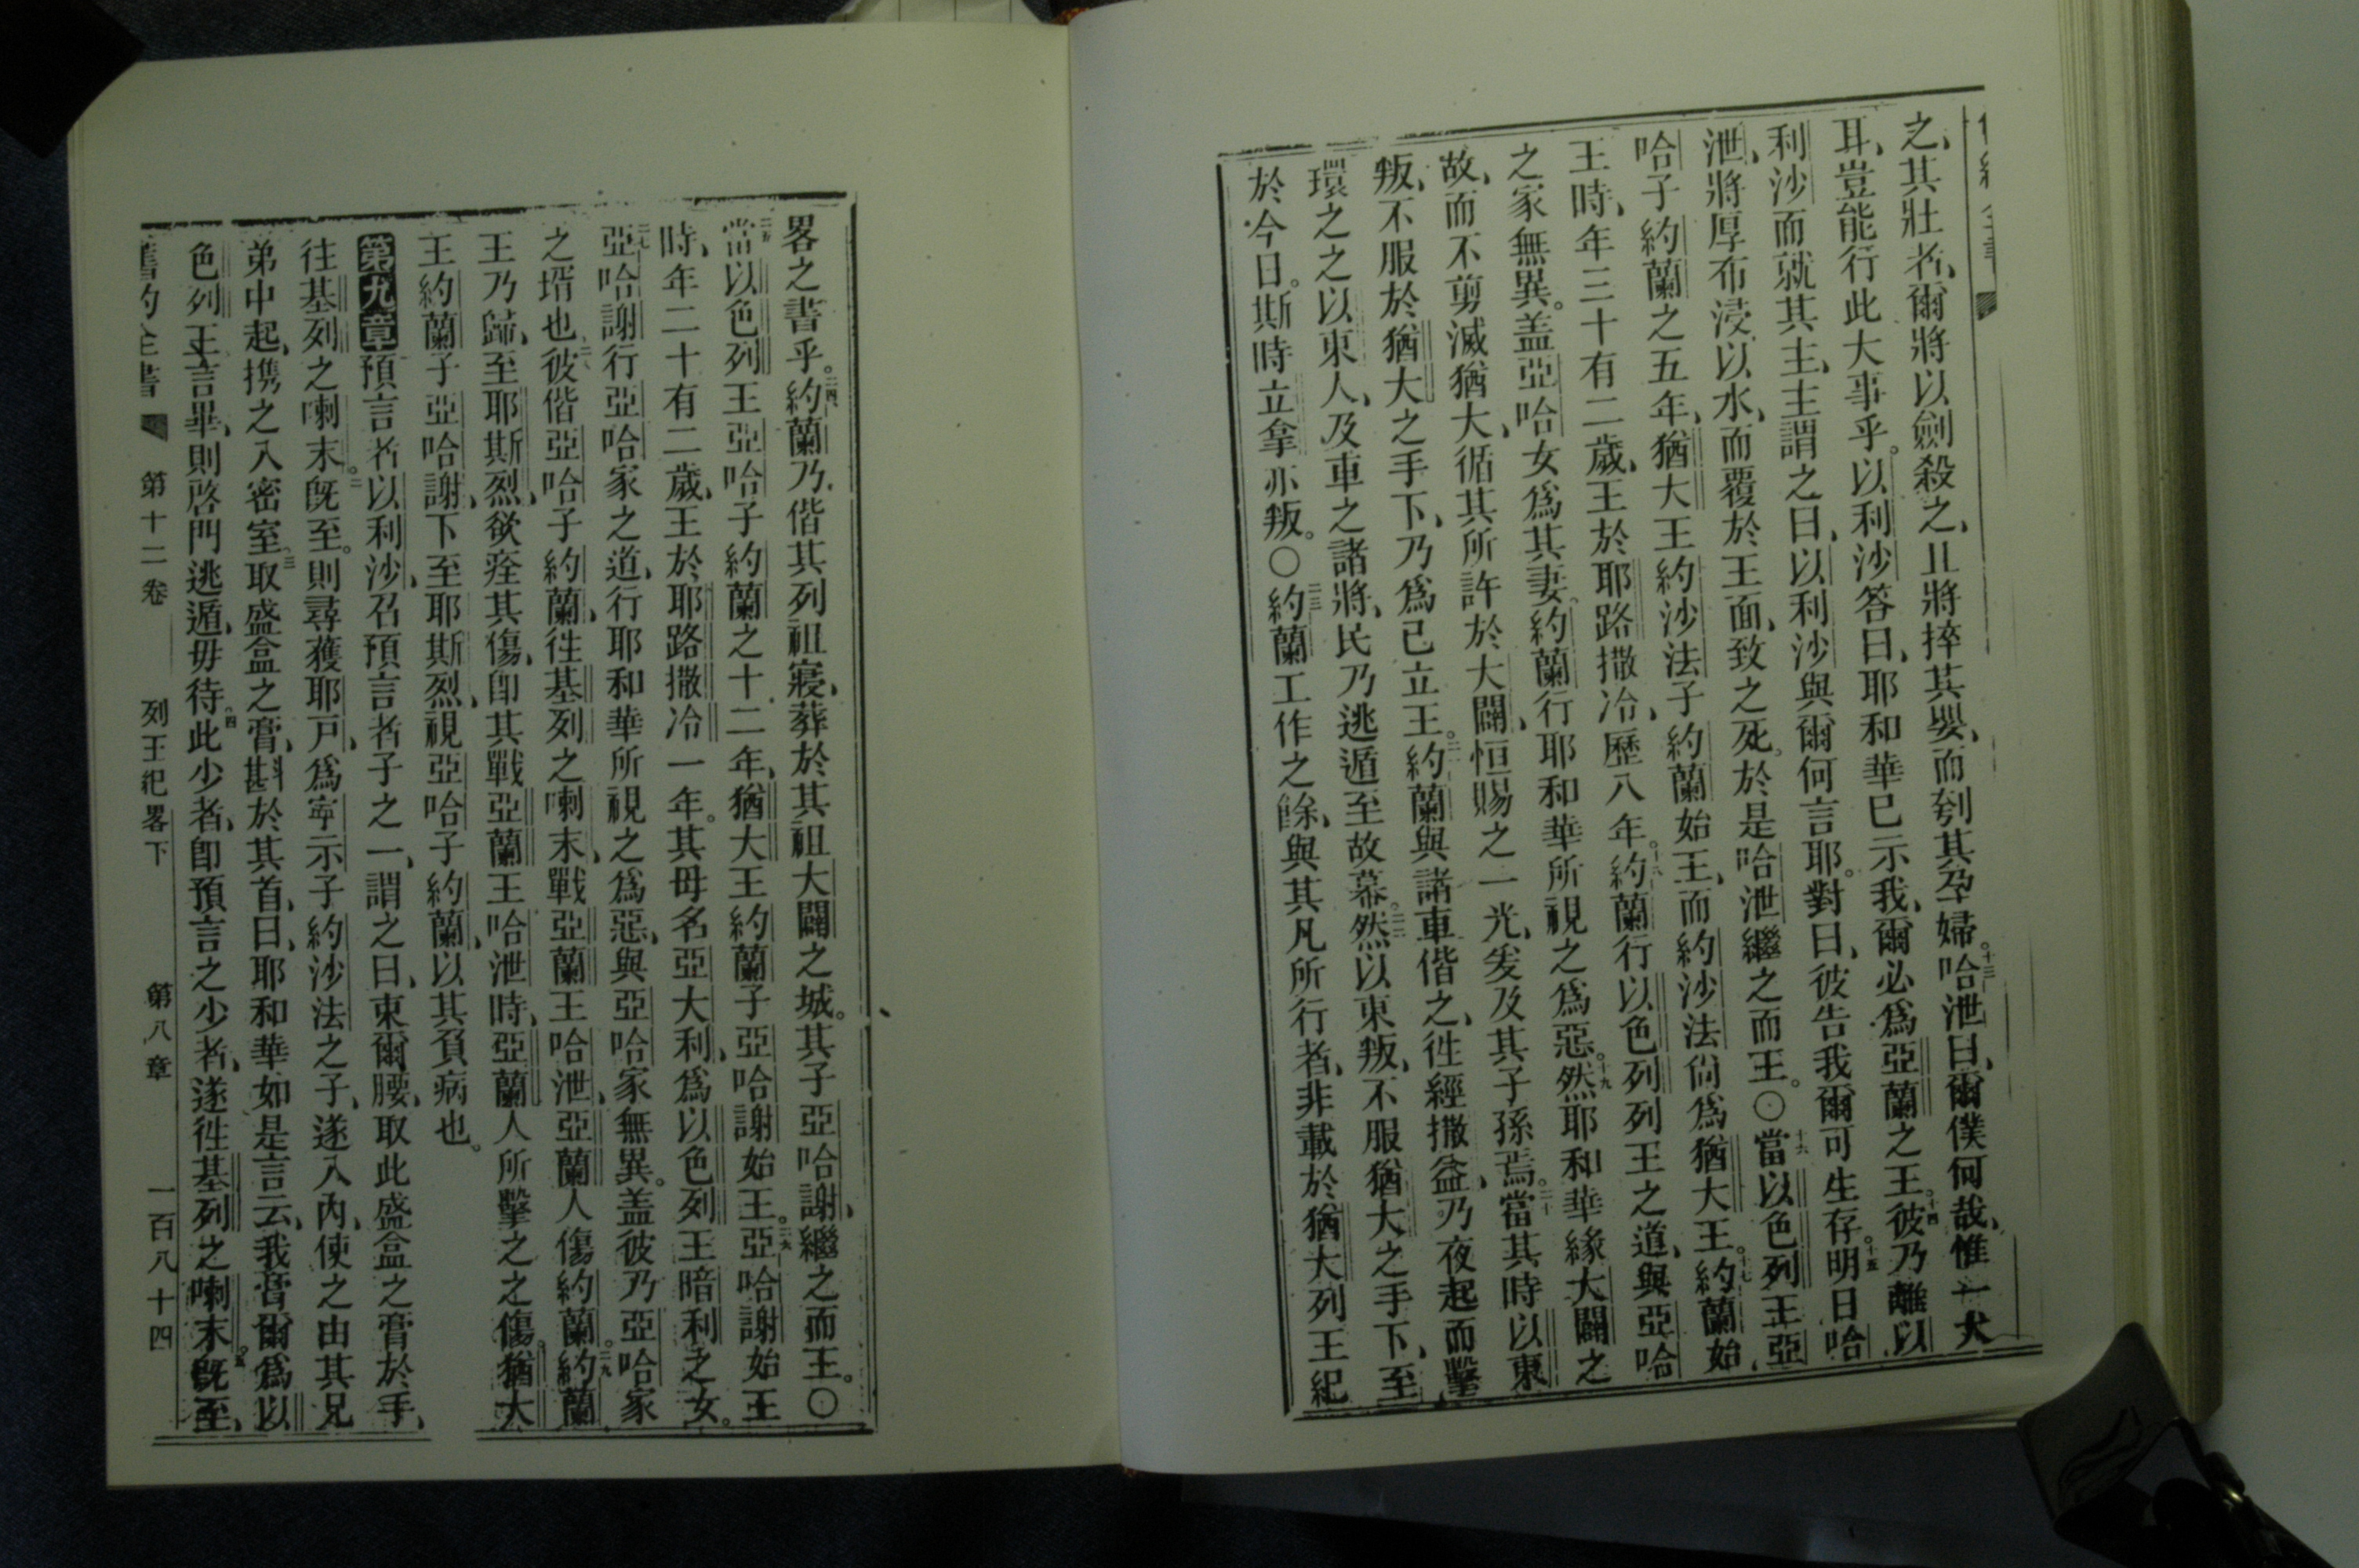 之、其壯者、爾將以劍殺之、且將摔其嬰、而刳其孕婦。十三哈泄曰、爾僕何哉、惟一犬
耳、豈能行此大事乎。以利沙答曰、耶和華已示我、爾必爲亞蘭之王。十四彼乃離以
利沙而就其主、主謂之曰、以利沙與爾何言耶。對曰、彼告我爾可生存。十五明日哈
泄、將厚布浸以水、而覆於王面、致之死。於是哈泄繼之而王。○十六當以色列王亞
哈子約蘭之五年、猶大王約沙法子約蘭始王、而約沙法尙爲猶大王。十七約蘭始
王時、年三十有二歲、王於耶路撒冷、歷八年。十八約蘭行以色列列王之道、與亞哈
之家無異。盖亞哈女爲其妻。約蘭行耶和華所視之爲惡。十九然耶和華緣大闢之
故、而不剪滅猶大、循其所許於大闢、恒賜之一光、爰及其子孫焉。二十當其時以東
叛、不服於猶大之手下、乃爲己立王。二一約蘭與諸車偕之、徃經撒益、乃夜起而擊
環之之以東人、及車之諸將、民乃逃遁至故幕。二二然以東叛、不服猶大之手下、至
於今日。斯時立拿亦叛。○二三約蘭工作之餘、與其凡所行者、非載於猶大列王紀
畧之書乎。二四約蘭乃偕其列祖寢、葬於其祖大闢之城。其子亞哈謝、繼之而王。○
二五當以色列王亞哈子約蘭之十二年、猶大王約蘭子亞哈謝始王。二六亞哈謝始王
時、年二十有二歲、王於耶路撒冷一年。其母名亞大利、爲以色列王暗利之女。
二七亞哈謝行亞哈家之道、行耶和華所視之爲惡、與亞哈家無異。盖彼乃亞哈家
之壻也。二八彼偕亞哈子約蘭、徃基列之喇末、戰亞蘭王哈泄、亞蘭人傷約蘭。二九約蘭
王乃歸、至耶斯烈、欲痊其傷、卽其戰亞蘭王哈泄時、亞蘭人所擊之之傷。猶大
王約蘭子亞哈謝、下至耶斯烈、視亞哈子約蘭、以其負病也。
第九章預言者以利沙、召預言者子之一、謂之曰、束爾腰、取此盛盒之膏於手、
徃基列之喇末。二旣至。則尋獲耶戸、爲寧示子約沙法之子、遂入內、使之由其兄
弟中起、携之入密室。三取盛盒之膏、斟於其首、曰、耶和華如是言云、我膏爾爲以
色列王、言畢、則啓門逃遁、毋待。四此少者、卽預言之少者、遂徃基列之喇末。五旣至、
舊約全書 第十二卷 列王紀畧下 第八章 一百八十四